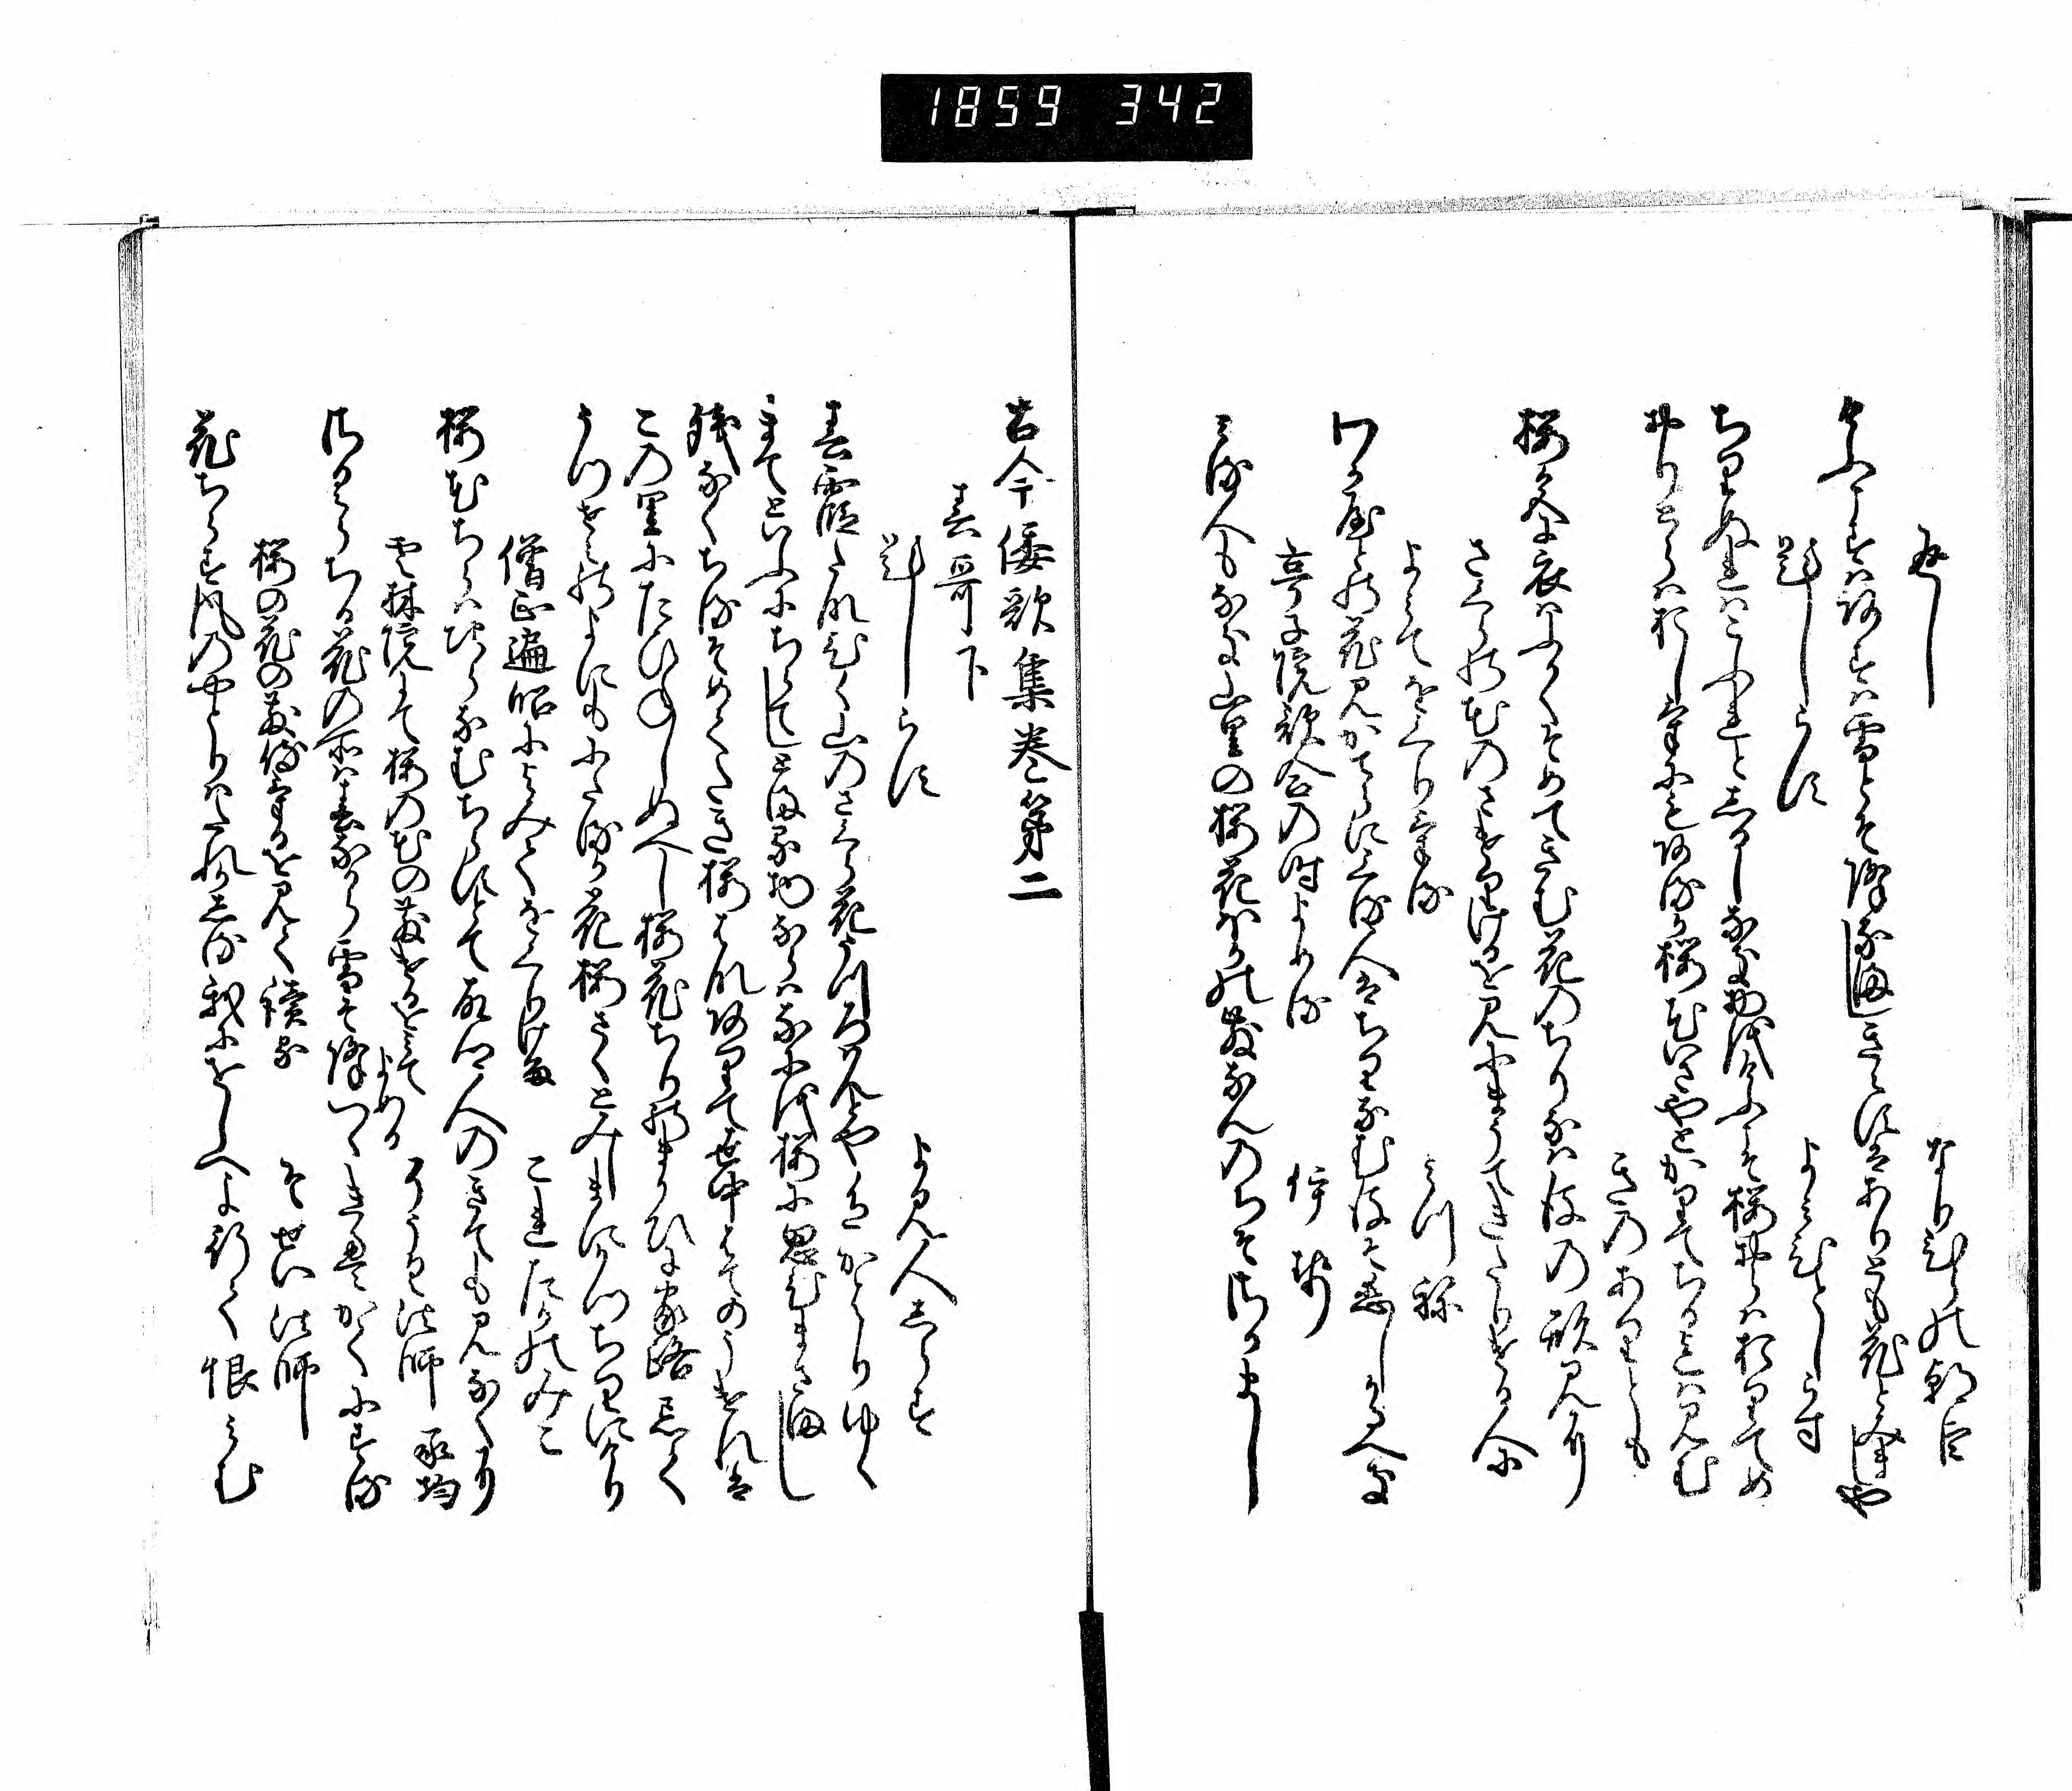 1859 342
返し
なりひらの朝臣
けふこすはあすは雪とそ降なましきえすはありとも花とみましや
題しらす
よみ人しらす
ちりぬれはこふれとしるしなき物をけふこそ桜おらはおりてめ
おりとらはおしけにもあるか桜花いさやとかりてちるまては見む
きのありとも
桜色に衣はふかくそめてきむ花のちりなん後の形見に
さくらの花のさけりけるを見にまうてきたりける人に
よみてをくりける
みつね
わか屋との花見かてらにくる人はちりなむ後そ恋しかるへき
亭子院歌合の時よめる
伊勢
みる人もなき山里の桜花ほかの散なんのちそさかまし
古今倭歌集巻第二
春哥下
題しらす
よみ人しらす
春霞たなひく山のさくら花うつろはんとや色かはりゆく
まてといふにちらてしとまる物ならはなにを桜に思ひまさまし
残なくちるそめてたき桜花ありて世中はてのうけれは
この里にたひねしぬへし桜花ちりのまかひに家路忘て
うつせみの世にもにたるか花桜さくとみしまにかつちりにけり
僧正遍昭によみてをくりける
これたかのみこ
桜花ちらはちらなむちらすとて故里人のきても見なくに
雲林院にて桜の花の散けるをみてよめる
そうく法師 承均
桜ちる花の所は春なから雪そ降つゝきえかてにする
桜の花の散侍けるを見て読る
そせい法師
花ちらす風のやとりはたれかしる我にをしへよ行て恨みむ